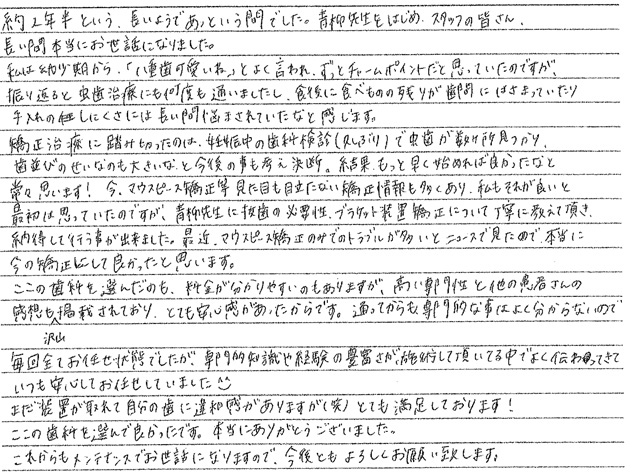 約2年半という、長いようであっという間でした。青柳先生をはじめ、スタッフの皆さん、
長い間本当にお世話になりました。
私は幼少期から、「八重歯可愛いね」とよく言われ、ずっとチャームポイントだと思っていたのですが、
振り返ると虫歯治療にも何度も通いましたし、食後に食べものの残りが歯間にはさまっていたり
手入れのしにくさには長い間悩まされていたなと感じます。
矯正治療に踏み切ったのは、妊娠中の歯科検診(久しぶり)で虫歯が数ヶ所見つかり、
歯並びのせいなのも大きいなと今後の事も考え決断。結果、もっと早く始めれば良かったなと
常々思います！今、マウスピース矯正等見た目も目立たない矯正情報も多くあり、私もそれが良いと
最初は思っていたのですが、青柳先生に抜歯の必要性、ブラケット装置矯正について丁寧に教えて頂き、
納得して行う事が出来ました。最近、マウスピース矯正のみでのトラブルが多いとニュースで見たので、本当に
今の矯正にして良かったと思います。
ここの歯科を選んだのも、料金が分かりやすいのもありますが、高い専門性と他の患者さんの
感想も沢山掲載されており、とても安心感があったからです。通ってからも専門的な事はよく分からないので
毎回全てお任せ状態でしたが、専門的知識や経験の豊富さが、施術して頂いてる中でよく伝わってきて
いつも安心してお任せしていました☺
まだ装置が取れて自分の歯に違和感がありますが(笑)とても満足しております！
ここの歯科を選んで良かったです。本当にありがとうございました。
これからもメンテナンスでお世話になりますので、今後ともよろしくお願い致します。